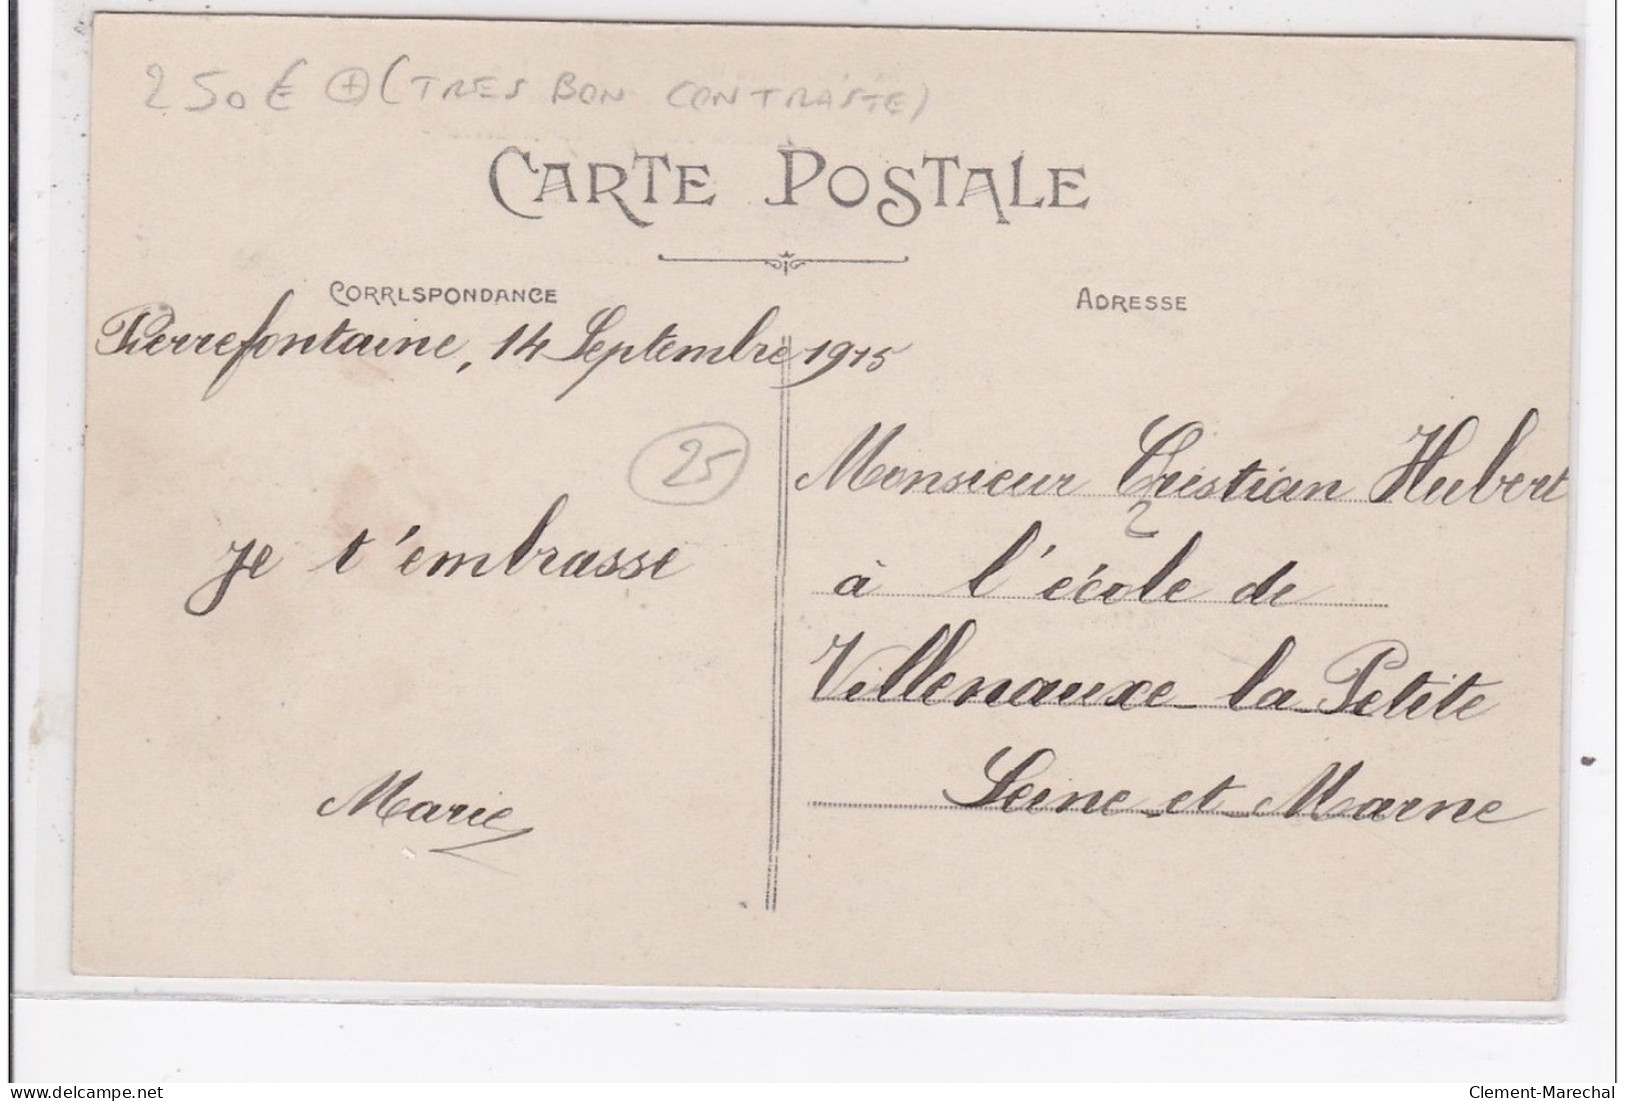 250€ + (TRES BON CONTRASTE)
CARTE POSTALE
CORRESPONDANCE
ADRESSE
Pierrefontaine, 14 Septembre 1915
25
Je t'embrasse
Marie
Monsieur Cristian Hubert
à l'école de
Villenauxe la Petite
Seine et Marne
www.delcampe.net
Clement-Marechal